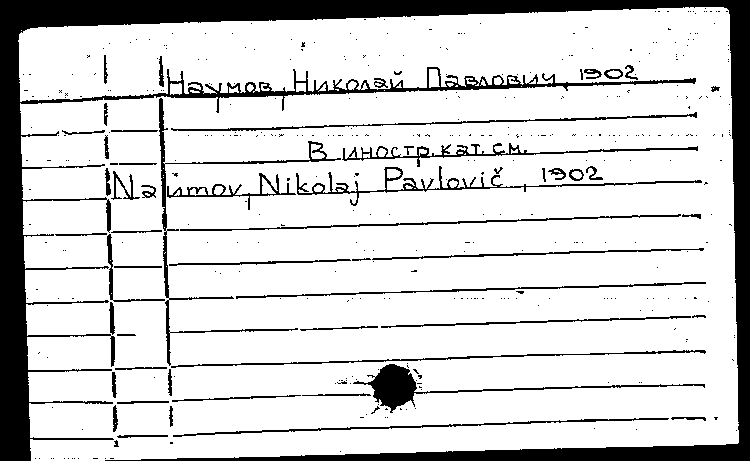 Наумов, Николай Павлович, 1902
В иностр. кат. см.
Naumov, Nikolaj Pavlovič, 1902